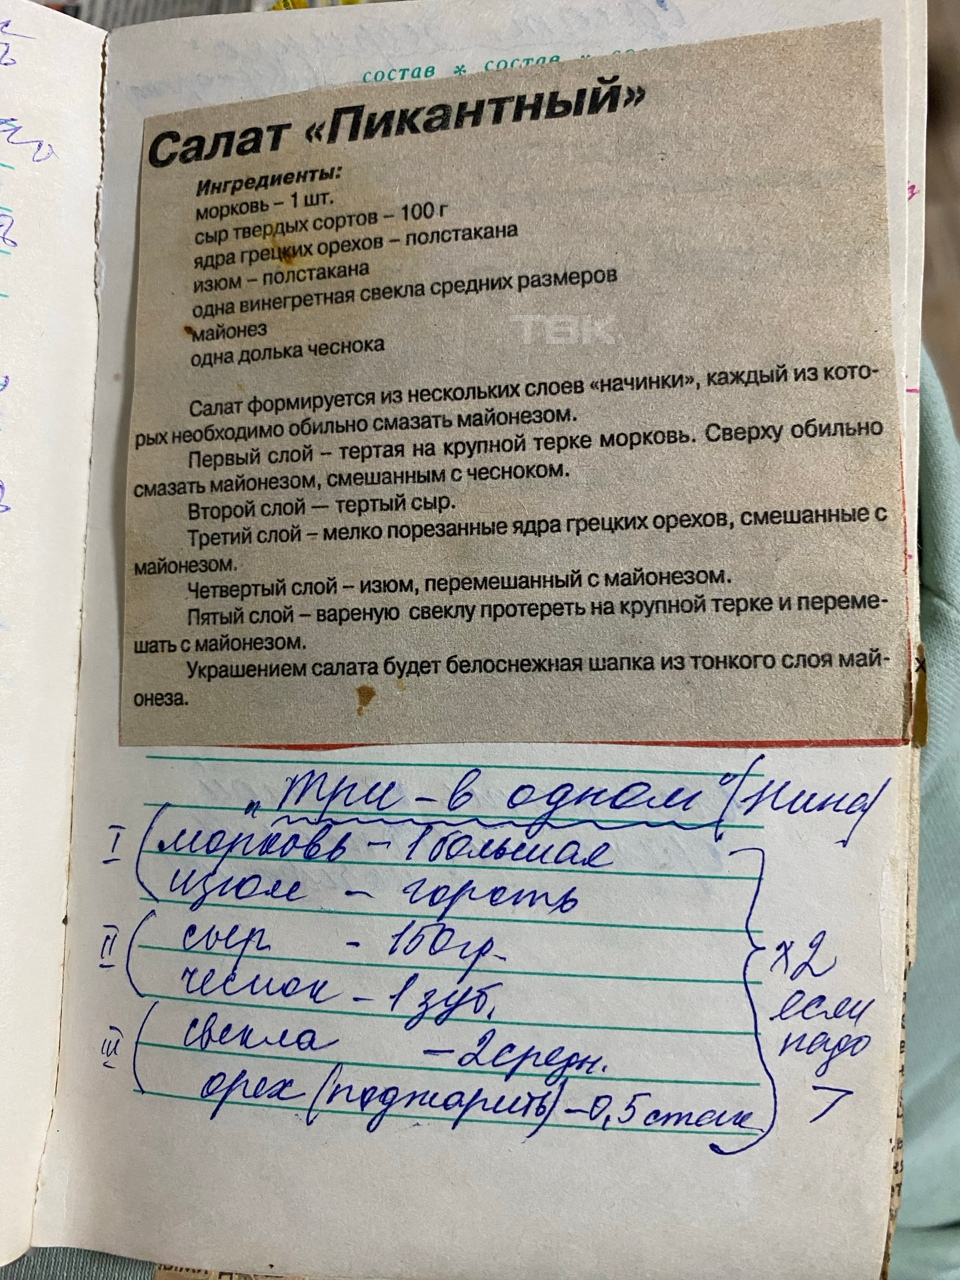 состав * состав *
Салат «Пикантный»
Ингредиенты:
морковь – 1 шт.
сыр твердых сортов – 100 г
ядра грецких орехов – полстакана
изюм – полстакана
одна винегретная свекла средних размеров
майонез
одна долька чеснока
ТВК
Салат формируется из нескольких слоев «начинки», каждый из кото-
рых необходимо обильно смазать майонезом.
Первый слой – тертая на крупной терке морковь. Сверху обильно
смазать майонезом, смешанным с чесноком.
Второй слой — тертый сыр.
Третий слой – мелко порезанные ядра грецких орехов, смешанные с
майонезом.
Четвертый слой – изюм, перемешанный с майонезом.
Пятый слой – вареную свеклу протереть на крупной терке и переме-
шать с майонезом.
Украшением салата будет белоснежная шапка из тонкого слоя май-
онеза.
„Три – в одном" (Нина)
I морковь – 1 большая
изюм – горсть
II сыр – 150 гр.
чеснок – 1 зуб.
III свекла – 2 средн.
орех (поджарить) – 0,5 стак
х2
если
надо
>